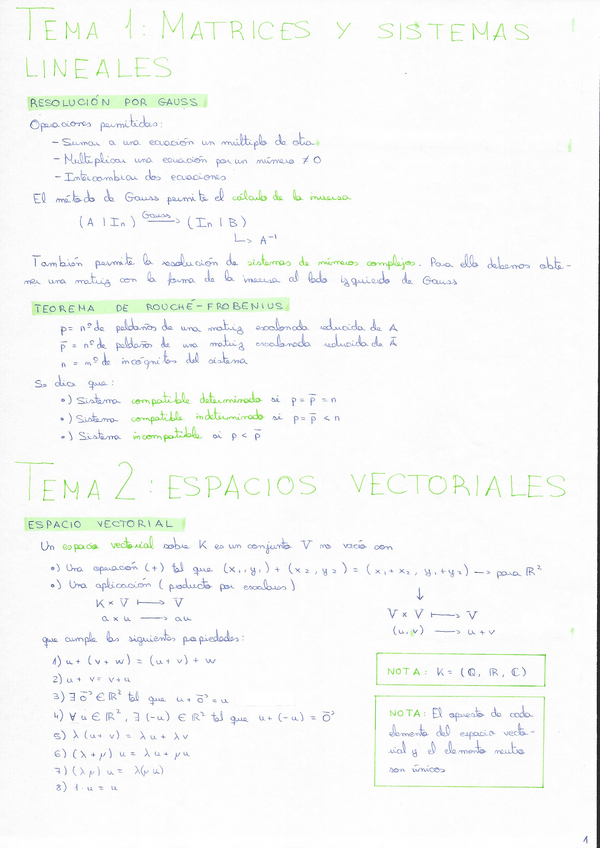 TEMA 1: MATRICES Y SISTEMAS
LINEALES
RESOLUCIÓN POR GAUSS
Operaciones permitidas:
- Sumar a una ecuación un múltiplo de otra
- Multiplicar una ecuación por un número ≠ 0
- Intercambiar dos ecuaciones
El método de Gauss permite el cálculo de la inversa
(A | In) Gauss → (In | B)
↳ A⁻¹
También permite la resolución de sistemas de números complejos. Para ello debemos obte-
ner una matriz con la forma de la inversa al lado izquierdo de Gauss
TEOREMA DE ROUCHÉ-FROBENIUS
p = nº de peldaños de una matriz escalonada reducida de A
p̄ = nº de peldaños de una matriz escalonada reducida de Ā
n = nº de incógnitas del sistema
Se dice que:
•) Sistema compatible determinado si p = p̄ = n
•) Sistema compatible indeterminado si p = p̄ < n
•) Sistema incompatible si p < p̄
TEMA 2: ESPACIOS VECTORIALES
ESPACIO VECTORIAL
Un espacio vectorial sobre K es un conjunto V no vacío con
•) Una operación (+) tal que (x₁, y₁) + (x₂, y₂) = (x₁+x₂, y₁+y₂) → para ℝ²
•) Una aplicación (producto por escalares)
K × V ⟼ V
a × u ⟶ au
↓
V × V ⟼ V
(u, v) ⟶ u+v
que cumple las siguientes propiedades:
1) u + (v + w) = (u + v) + w
2) u + v = v + u
3) ∃ 0⃗ ∈ ℝ² tal que u + 0⃗ = u
4) ∀ u ∈ ℝ², ∃ (-u) ∈ ℝ² tal que u + (-u) = 0⃗
5) λ (u + v) = λu + λv
6) (λ + μ) u = λu + μu
7) (λμ) u = λ(μu)
8) 1 · u = u
NOTA: K = (ℚ, ℝ, ℂ)
NOTA: El opuesto de cada
elemento del espacio vecto-
rial y el elemento neutro
son únicos
1